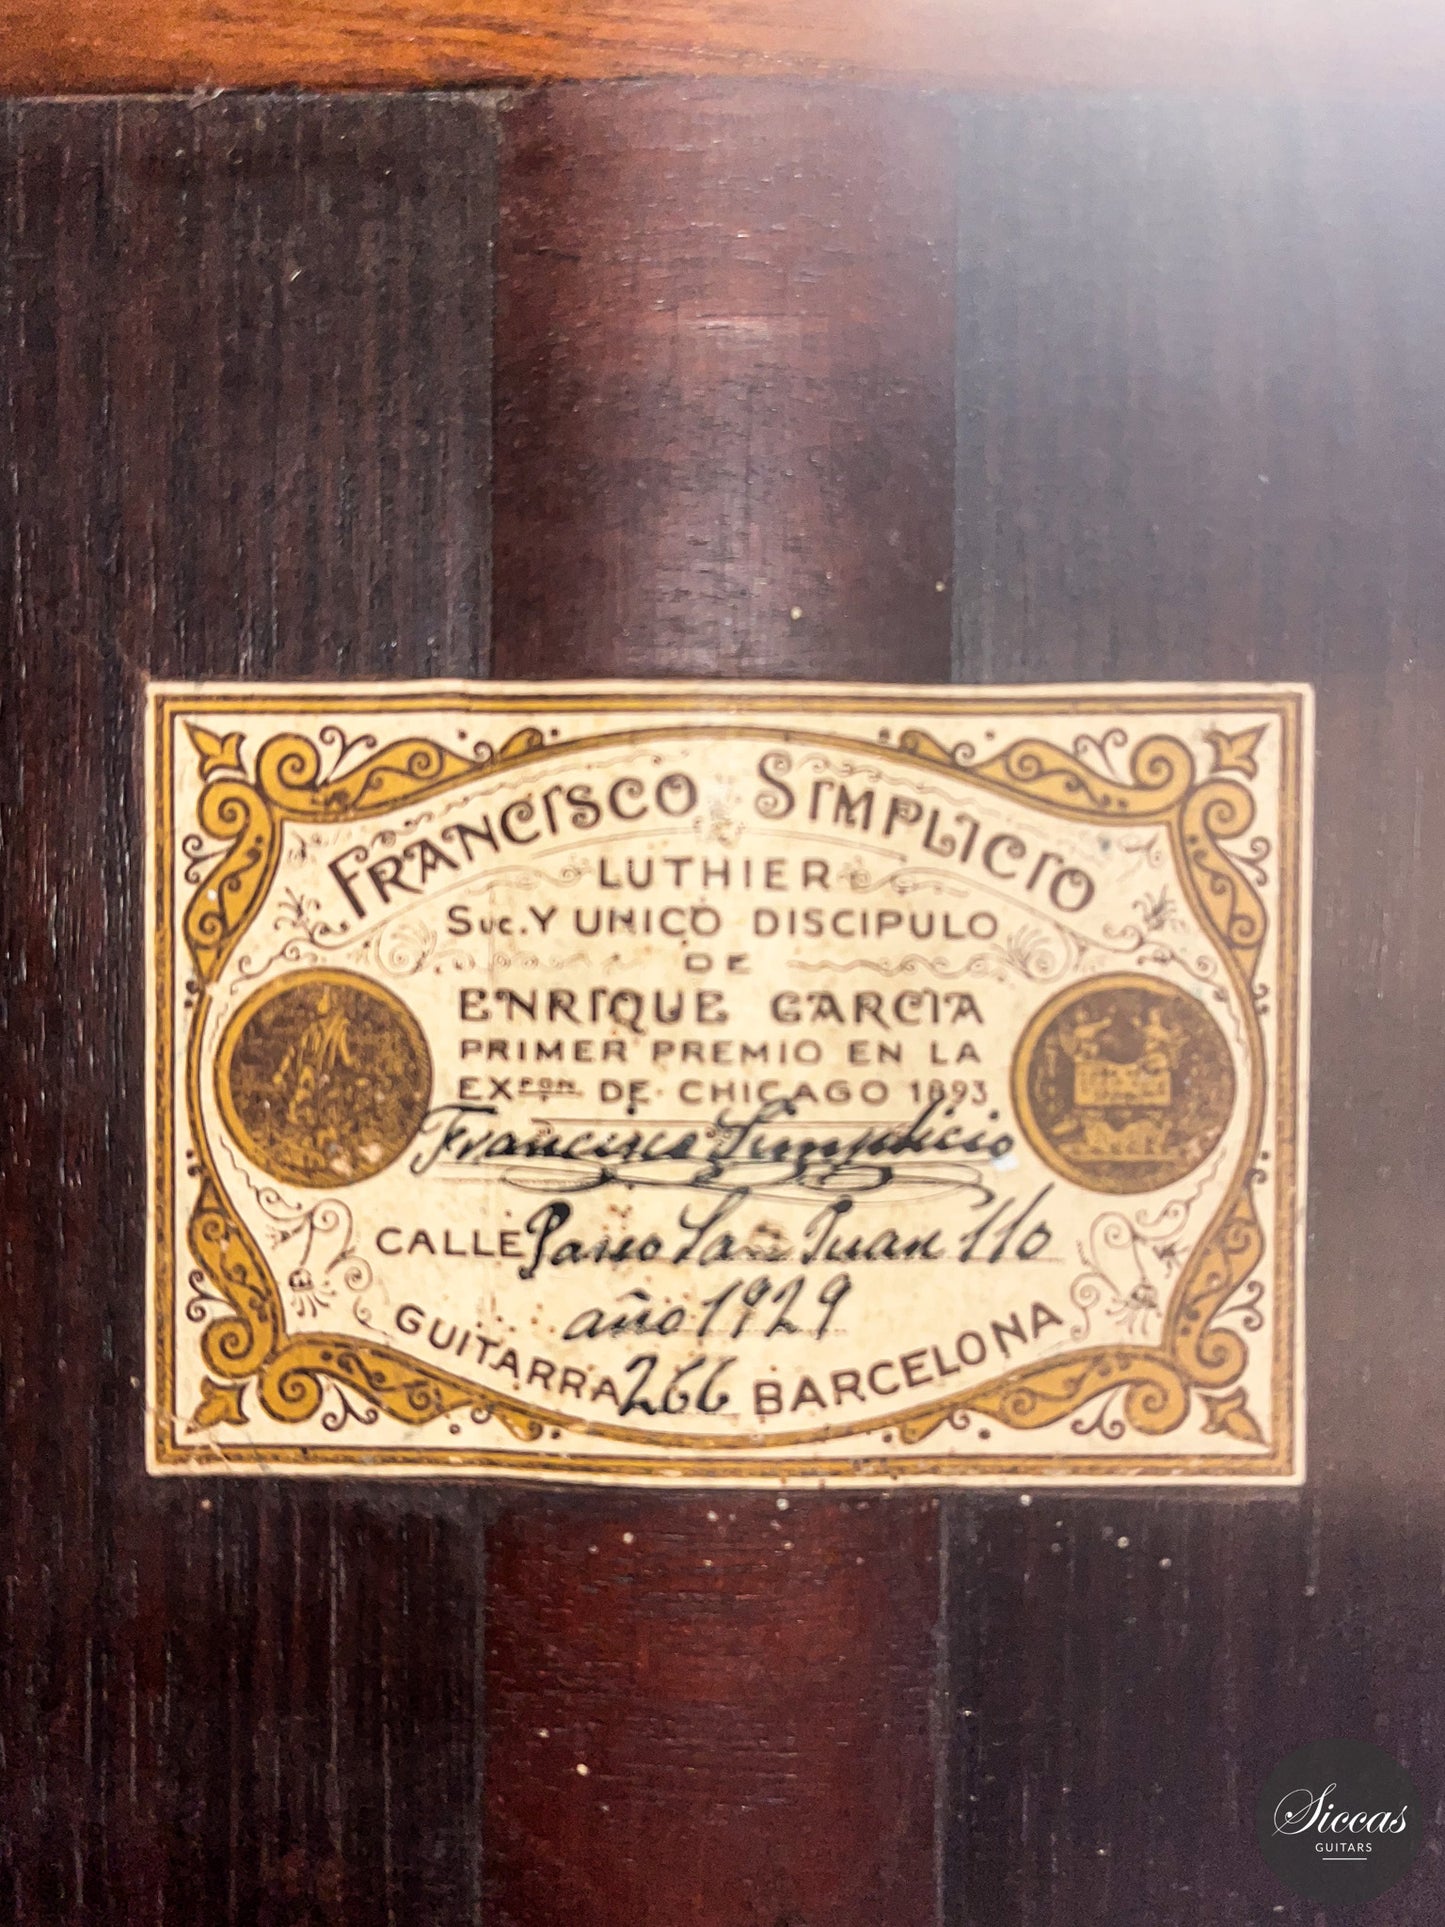 FRANCISCO SIMPLICIO
LUTHIER
Suc. Y UNICO DISCIPULO
DE
ENRIQUE GARCIA
PRIMER PREMIO EN LA
EXPON DE CHICAGO 1893
Francisco Simplicio
CALLE Paseo San Juan 110
año 1929
GUITARRA 266 BARCELONA
Siccas
GUITARS